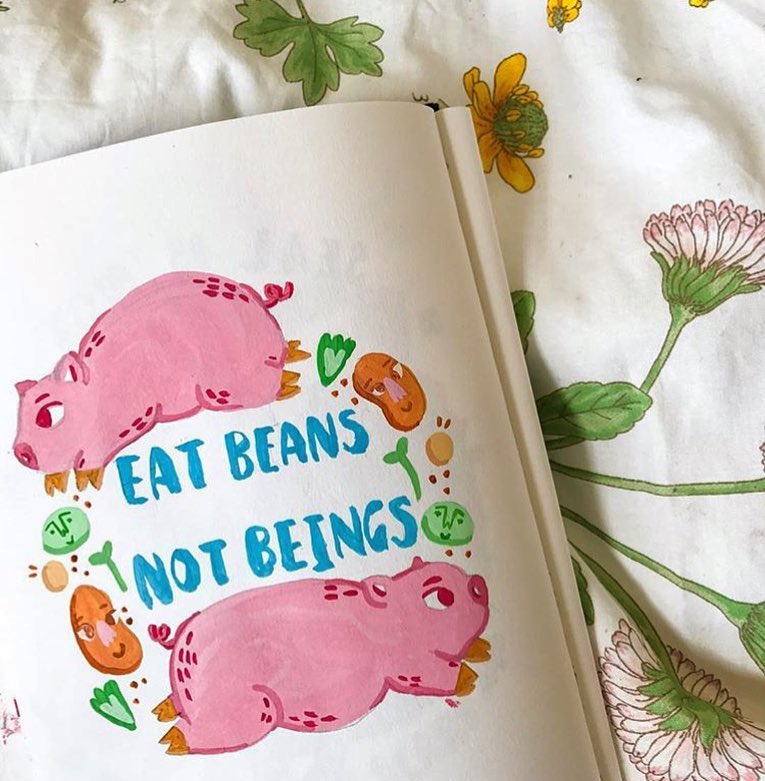 EAT BEANS
NOT BEINGS